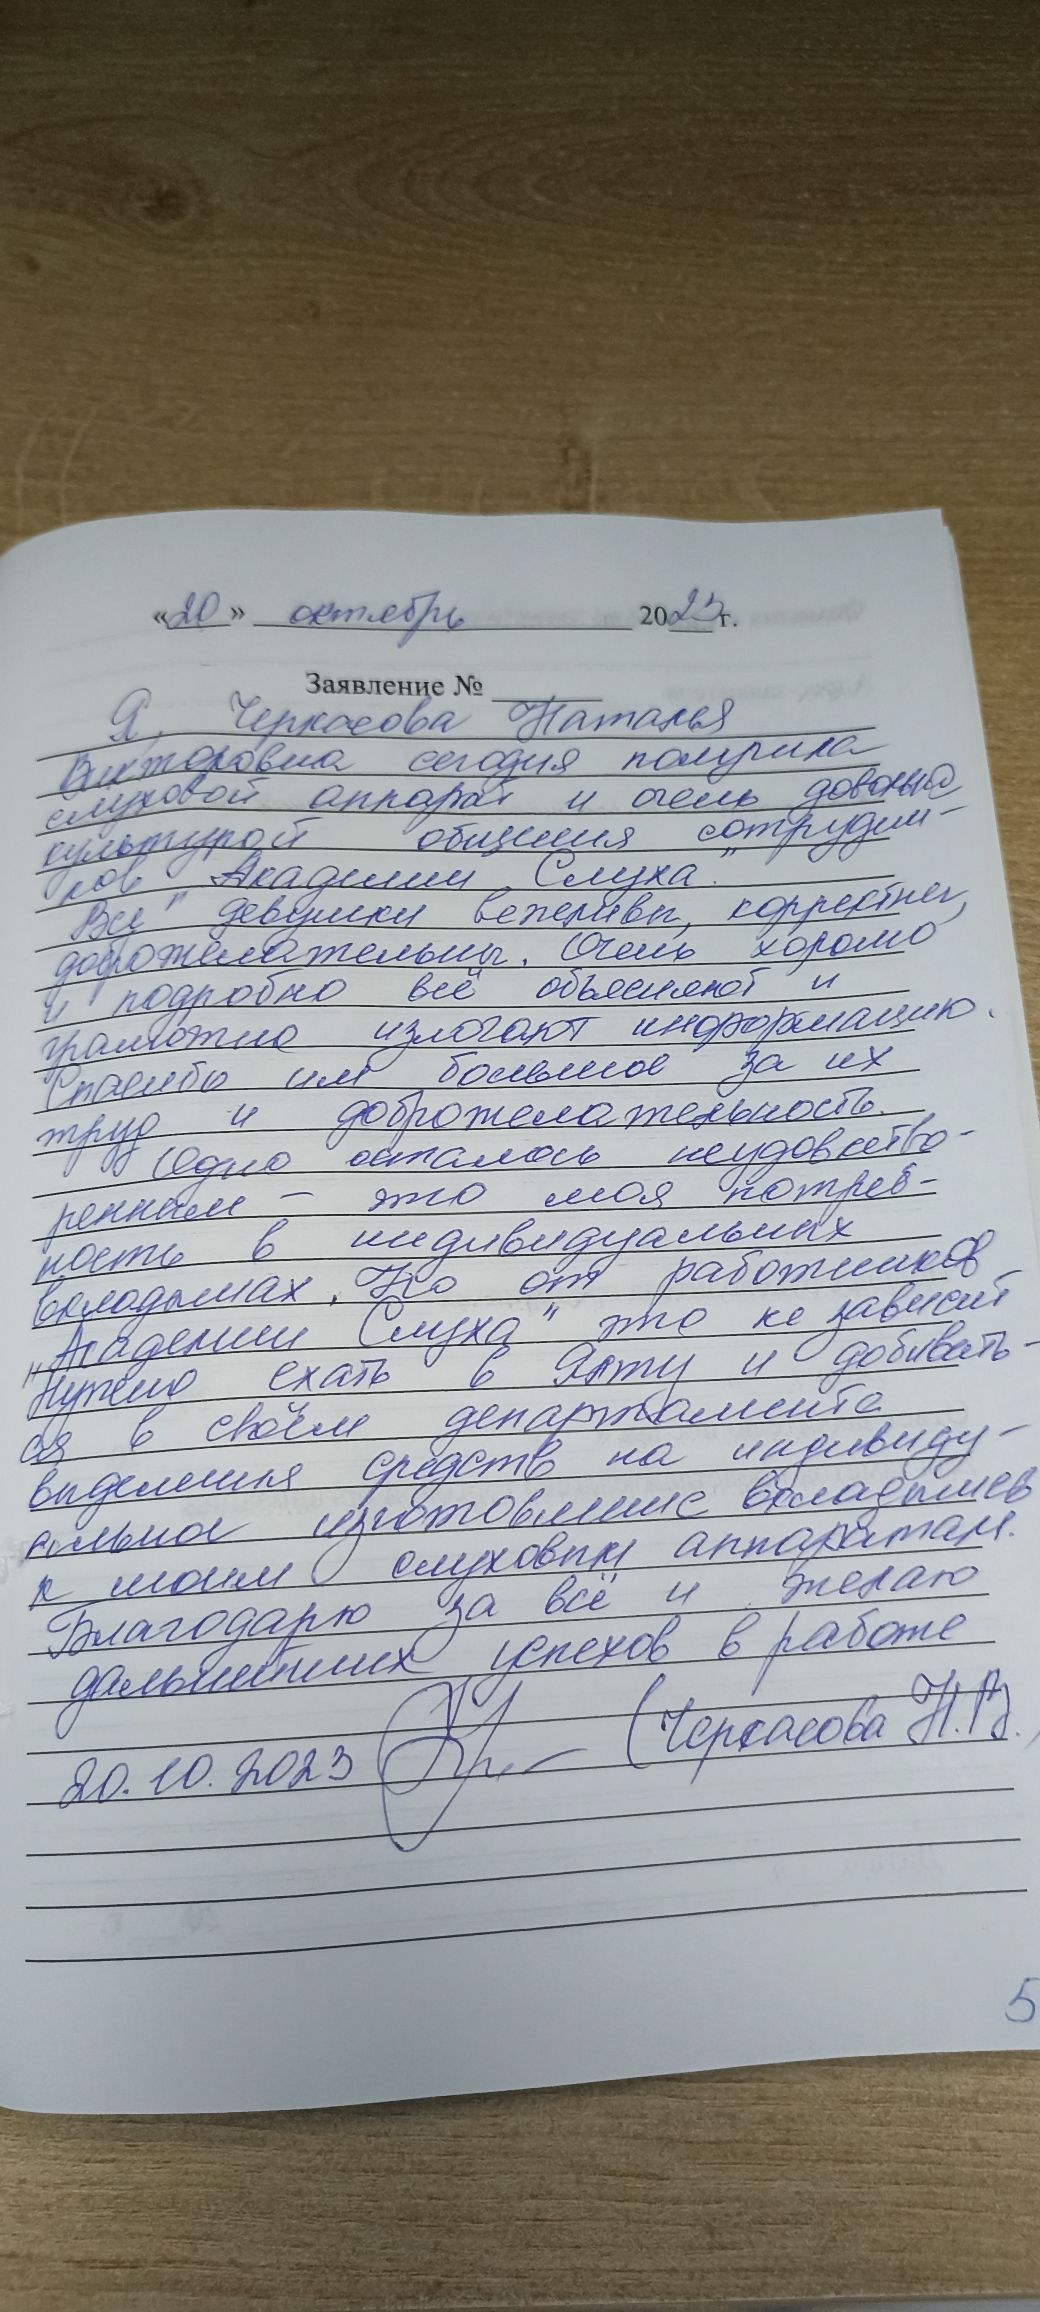 «20» октябрь 2023г.
Заявление №
Я, Черкасова Наталья
Викторовна сегодня получила
слуховой аппарат и очень довольна
культурой общения сотрудни-
ков "Академии Слуха".
Все девушки вежливы, корректны,
доброжелательны. Очень хорошо
и подробно всё объясняют и
грамотно излагают информацию.
Спасибо им большое за их
труд и доброжелательность.
Одно осталось неудовлетво-
ренным – это моя потреб-
ность в индивидуальных
вкладышах. Но от работников
"Академии Слуха" это не зависит
Нужно ехать в Ялту и добивать-
ся в своём департаменте
выделения средств на индивиду-
альное изготовление вкладышей
к моим слуховым аппаратам.
Благодарю за всё и желаю
дальнейших успехов в работе
20.10.2023 (Черкасова Н.В.)
5